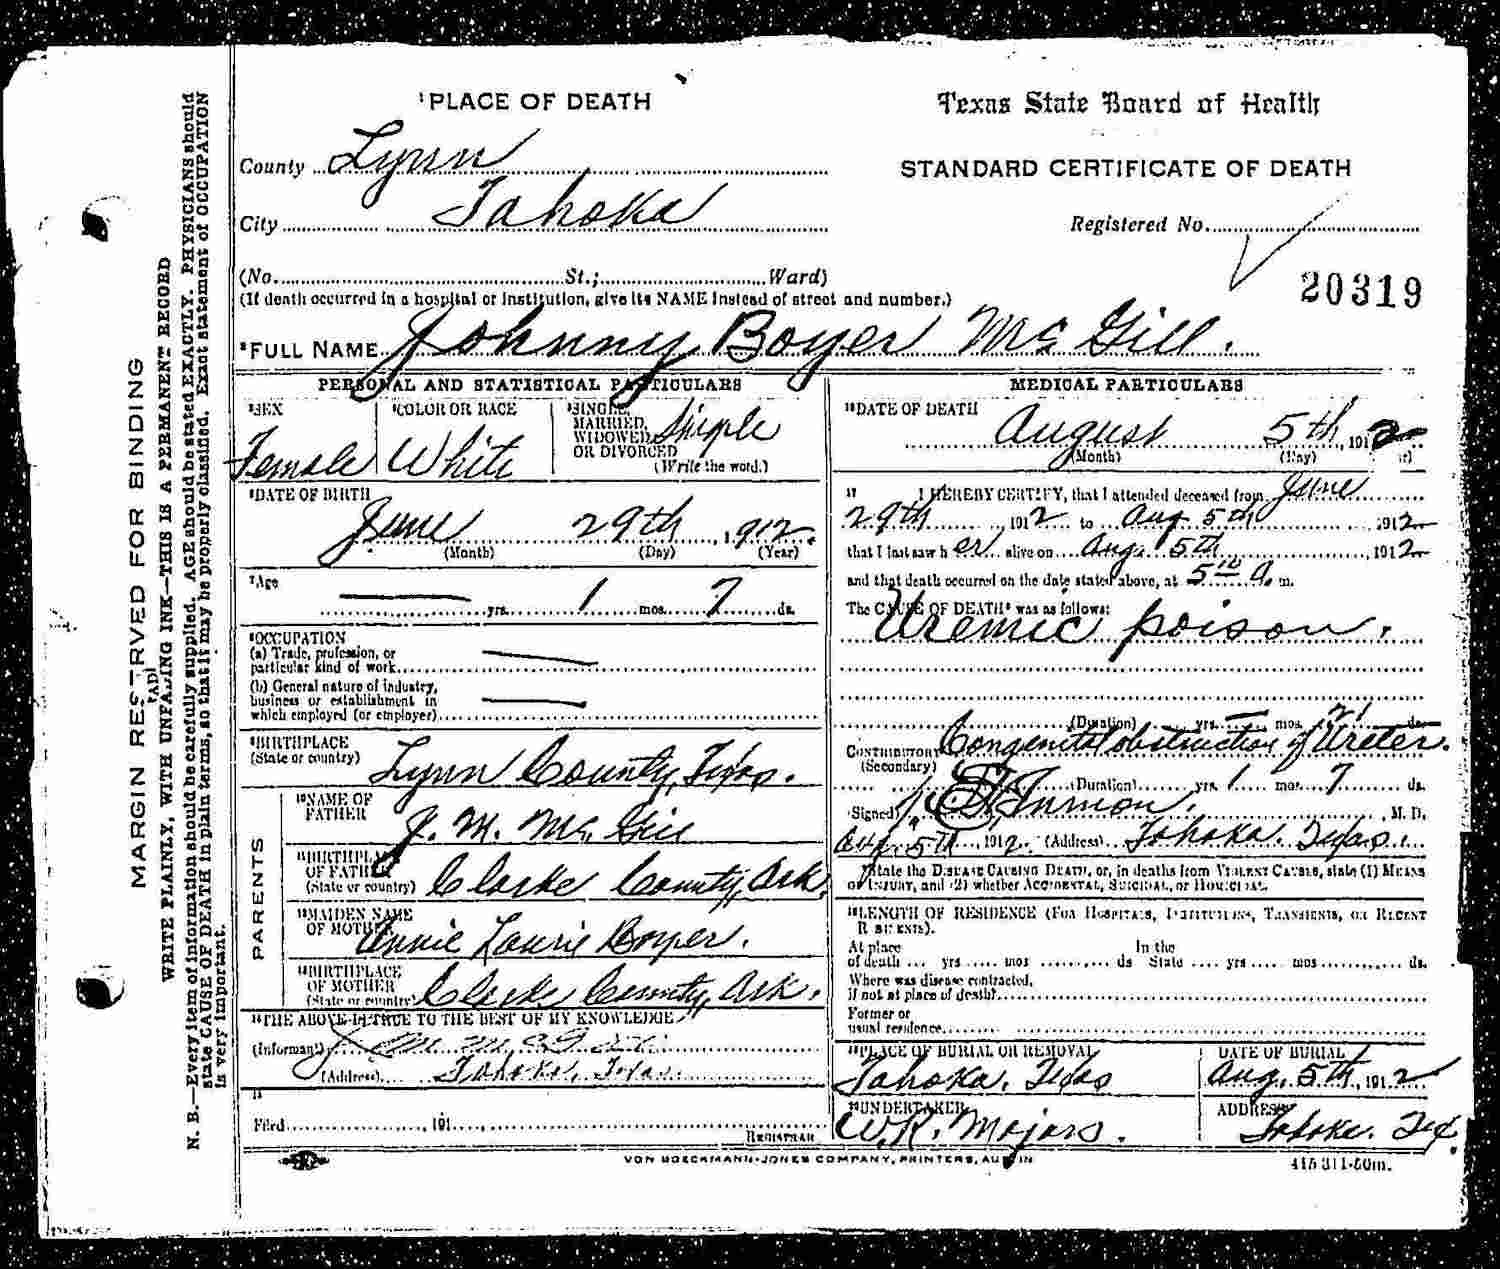 ¹PLACE OF DEATH
Texas State Board of Health
County Lynn
STANDARD CERTIFICATE OF DEATH
City Tahoka
Registered No.
(No. St.; Ward)
20319
(If death occurred in a hospital or institution, give its NAME instead of street and number.)
²FULL NAME Johnny Boyer McGill.
PERSONAL AND STATISTICAL PARTICULARS
³SEX
Female
⁴COLOR OR RACE
White
⁵SINGLE, MARRIED, WIDOWED, OR DIVORCED
Single
(Write the word.)
⁶DATE OF BIRTH
June 29th, 1912.
(Month) (Day) (Year)
⁷Age
— yrs. 1 mos. 7 ds.
⁸OCCUPATION
(a) Trade, profession, or
particular kind of work —
(b) General nature of industry,
business or establishment in
which employed (or employer) —
⁹BIRTHPLACE
(State or country)
Lynn County, Texas.
PARENTS
¹⁰NAME OF
FATHER
J. M. McGill
¹¹BIRTHPLACE
OF FATHER
(State or country)
Clarke County, Ark.
¹²MAIDEN NAME
OF MOTHER
Annie Laurie Boyer.
¹³BIRTHPLACE
OF MOTHER
(State or country)
Clarke County, Ark.
¹⁴THE ABOVE IS TRUE TO THE BEST OF MY KNOWLEDGE
(Informant) J. M. McGill
(Address) Tahoka, Texas.
¹⁵
Filed , 191
REGISTRAR
MEDICAL PARTICULARS
¹⁶DATE OF DEATH
August 5th, 1912
(Month) (Day)
¹⁷ I HEREBY CERTIFY, that I attended deceased from June
29th 1912 to Aug 5th 1912
that I last saw her alive on Aug. 5th, 1912
and that death occurred on the date stated above, at 5 A. m.
The CAUSE OF DEATH* was as follows:
Uremic poison.
(Duration) yrs. — mos. 21 ds.
CONTRIBUTORY Congenital obstruction of Ureter.
(Secondary)
(Duration) yrs. 1 mos. 7 ds.
Signed Inmon, M. D.
Aug. 5th, 1912. (Address) Tahoka. Texas.
*State the DISEASE CAUSING DEATH, or, in deaths from VIOLENT CAUSES, state (1) MEANS
OF INJURY, and (2) whether ACCIDENTAL, SUICIDAL, or HOMICIDAL.
¹⁸LENGTH OF RESIDENCE (FOR HOSPITALS, INSTITUTIONS, TRANSIENTS, OR RECENT
RESIDENTS).
At place of death yrs mos ds In the State yrs mos ds.
Where was disease contracted,
if not at place of death?
Former or
usual residence
¹⁹PLACE OF BURIAL OR REMOVAL
Tahoka, Texas
DATE OF BURIAL
Aug. 5th, 1912
²⁰UNDERTAKER
W. R. Majors.
ADDRESS
Tahoka. Tex.
VON BOECKMANN-JONES COMPANY, PRINTERS, AUSTIN
415 311-50m.
MARGIN RESERVED FOR BINDING
WRITE PLAINLY, WITH UNFADING INK—THIS IS A PERMANENT RECORD
N. B.—Every item of information should be carefully supplied. AGE should be stated EXACTLY. PHYSICIANS should
state CAUSE OF DEATH in plain terms, so that it may be properly classified. Exact statement of OCCUPATION
is very important.